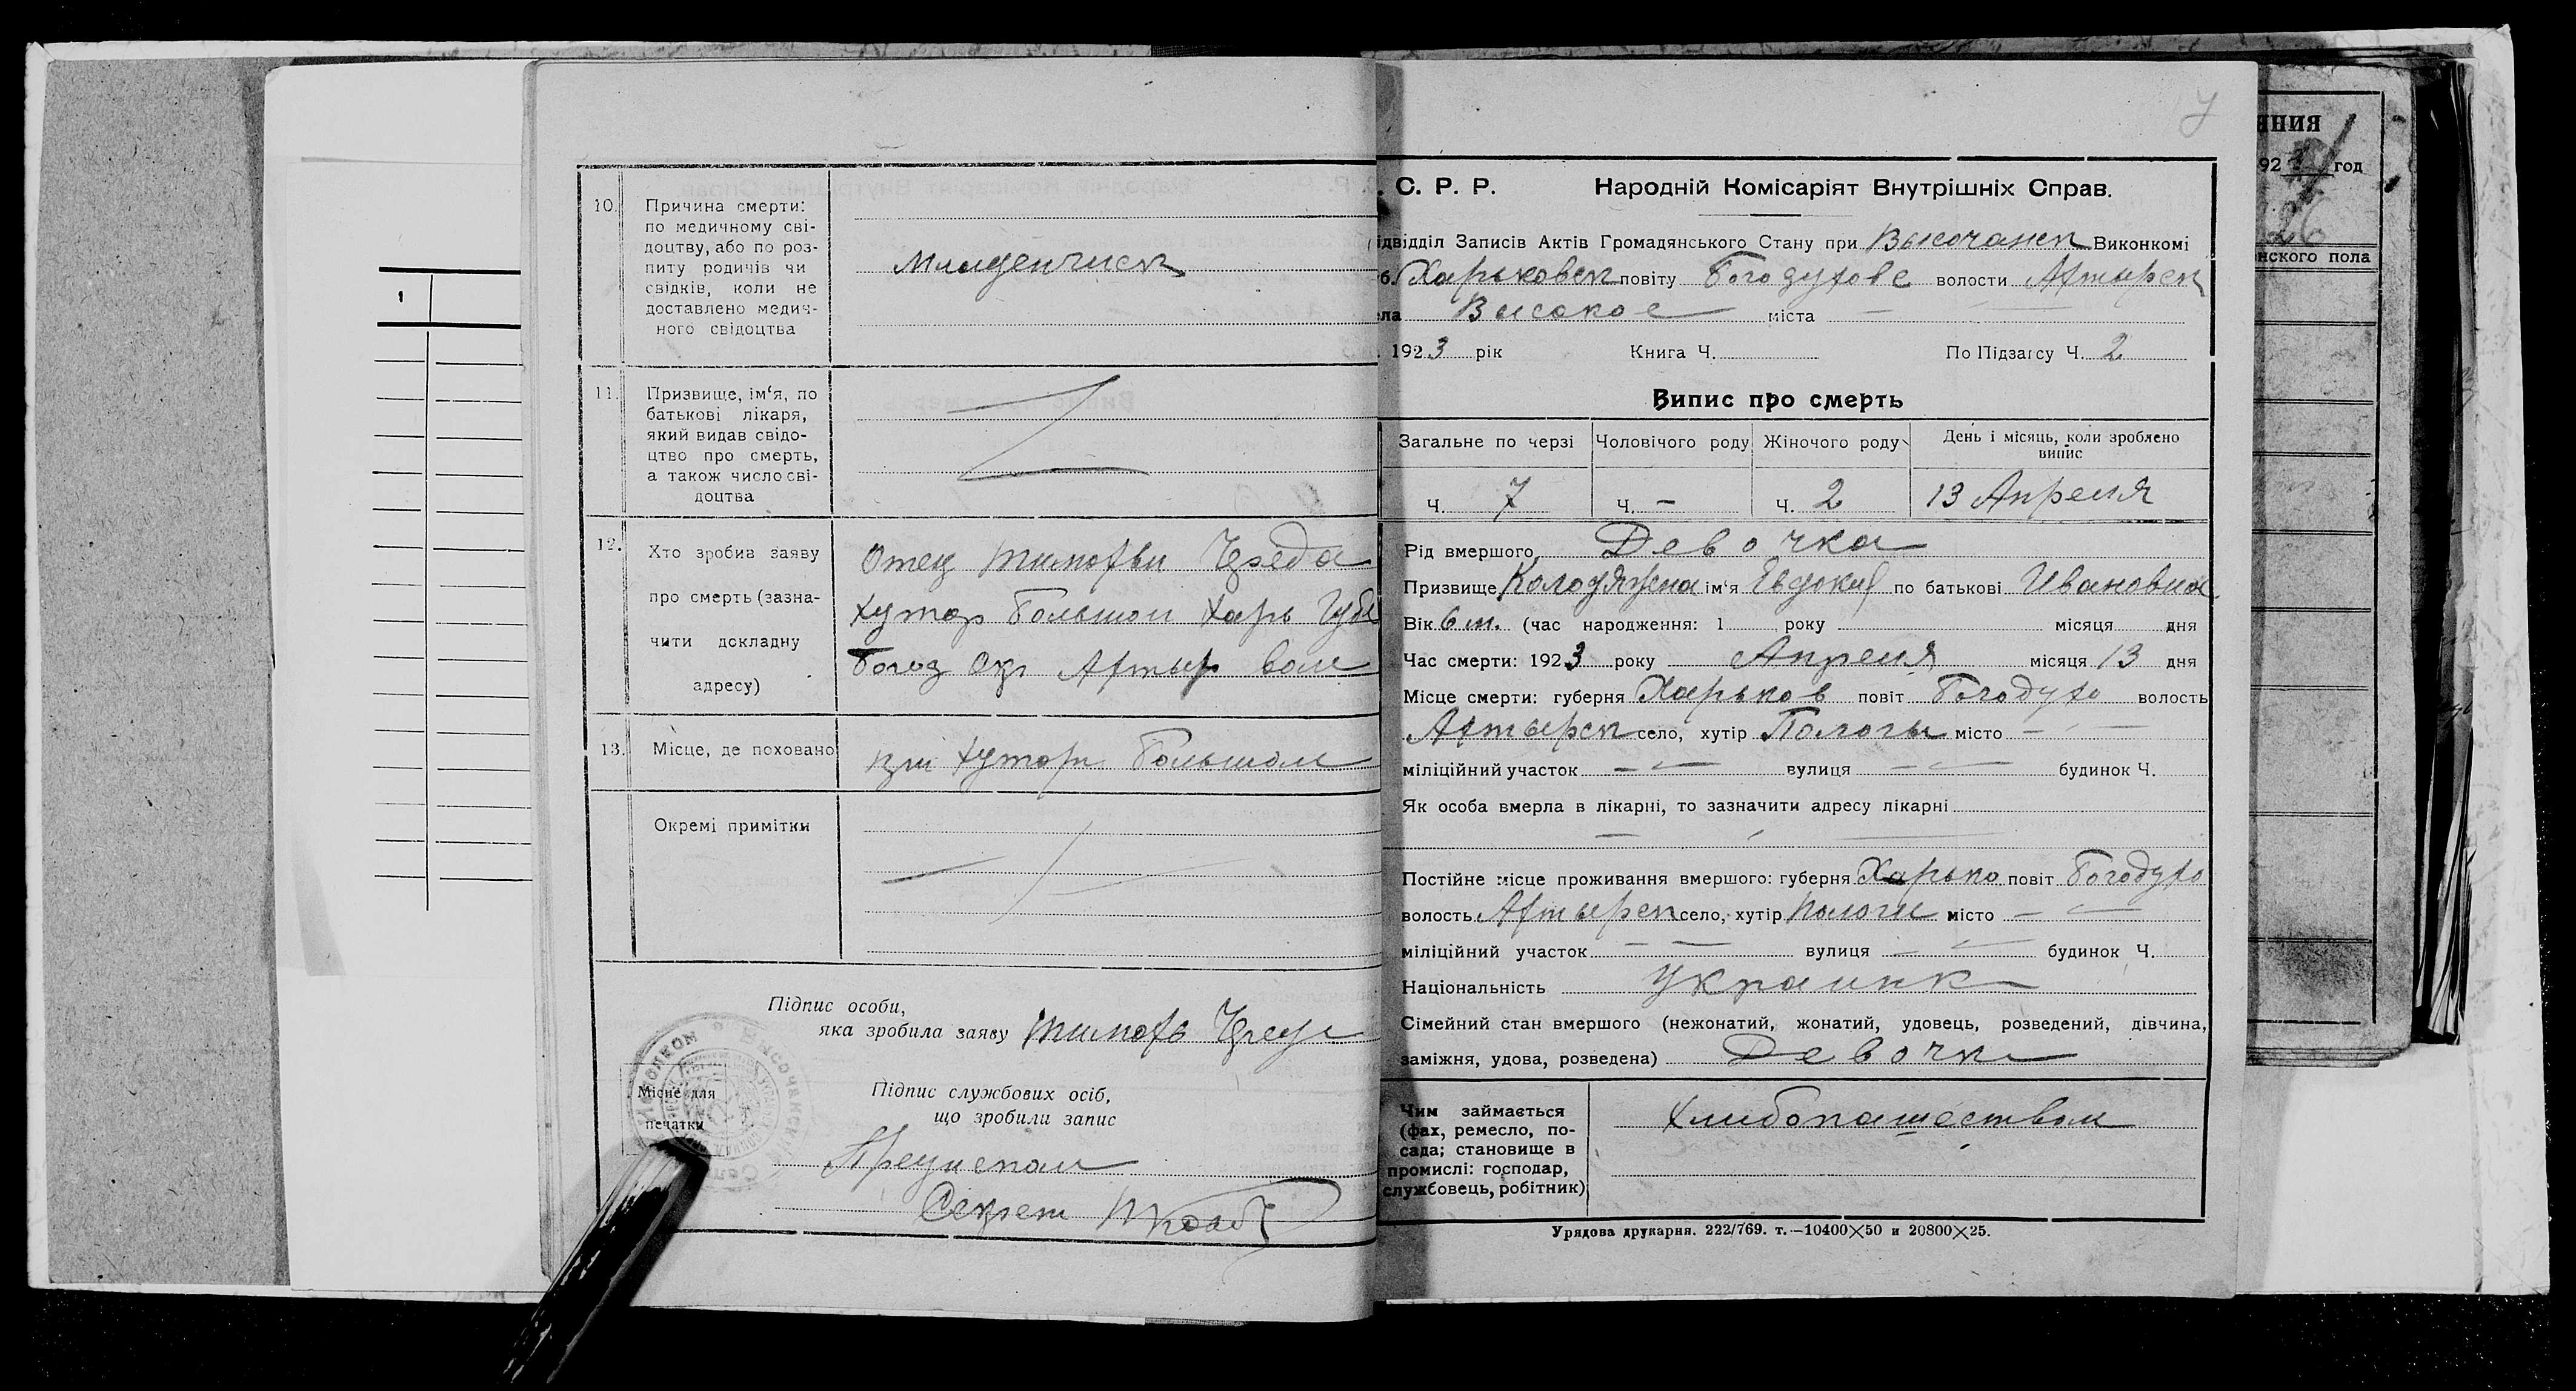 10. Причина смерти:
по медичному сві-
доцтву, або по роз-
питу родичів чи
свідків, коли не
доставлено медич-
ного свідоцтва
Младенческ
11. Призвище, ім'я, по
батькові лікаря,
який видав свідо-
цтво про смерть,
а також число сві-
доцтва
12. Хто зробив заяву
про смерть (зазна-
чити докладну
адресу)
Отец Тимофѣи Череда
Хутор Большои Харь Губе
Богод Окр Ахтыр вол
13. Місце, де поховано
при Хутори Большом
Окремі примітки
Підпис особи,
яка зробила заяву
Місце для
печатки
Підпис службових осіб,
що зробили запис
Предиспол
Секрет
1
С. Р. Р. Народній Комісаріят Внутрішніх Справ.
ідвідділ Записів Актів Громадянського Стану при Высочанск Виконкомі
б. Харьковск повіту Богодухове волости Ахтырск
ла Высокое міста —
1923 рік Книга Ч. По Підзагсу Ч. 2
Випис про смерть
Загальне по черзі Чоловічого роду Жіночого роду День і місяць, коли зроблено
випис
Ч. 7 Ч. – Ч. 2 13 Апреля
Рід вмершого Девочка
Призвище Колодяжна ім'я Евдокия по батькові Ивановна
Вік 6 м. (час народження: 1 року місяця дня
Час смерти: 1923 року Апреля місяця 13 дня
Місце смерти: губерня Харьков повіт Богодухо волость
Ахтырск село, хутір Пологы місто —
міліційний участок — вулиця — будинок Ч.
Як особа вмерла в лікарні, то зазначити адресу лікарні
Постійне місце проживання вмершого: губерня Харько повіт Богодухо
волость Ахтырск село, хутір Пологи місто —
міліційний участок — вулиця — будинок Ч.
Національність Украинк
Сімейний стан вмершого (нежонатий, жонатий, удовець, розведений, дівчина,
заміжня, удова, розведена) Девочка
Чим займається
(фах, ремесло, по-
сада; становище в
промислі: господар,
службовець, робітник)
Хлибопашеством
Урядова друкарня. 222/769. т.—10400×50 и 20800×25.
ННИЯ
192 год
26
нского пола